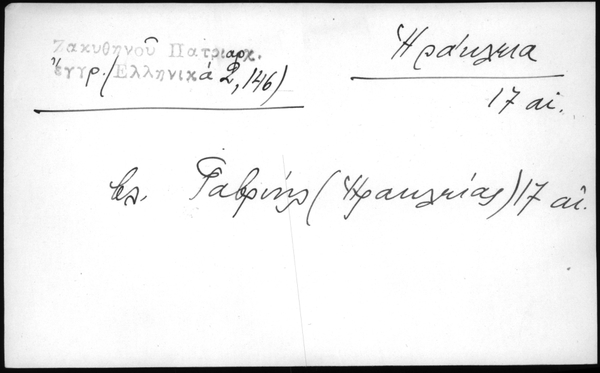 Ζακυθηνοῦ Πατριαρχ.
ἔγγρ. (Ἑλληνικά 2, 146)
Ἡράκλεια
17 αἰ.
βλ. Γαβριήλ (Ἡρακλείας) 17 αἰ.